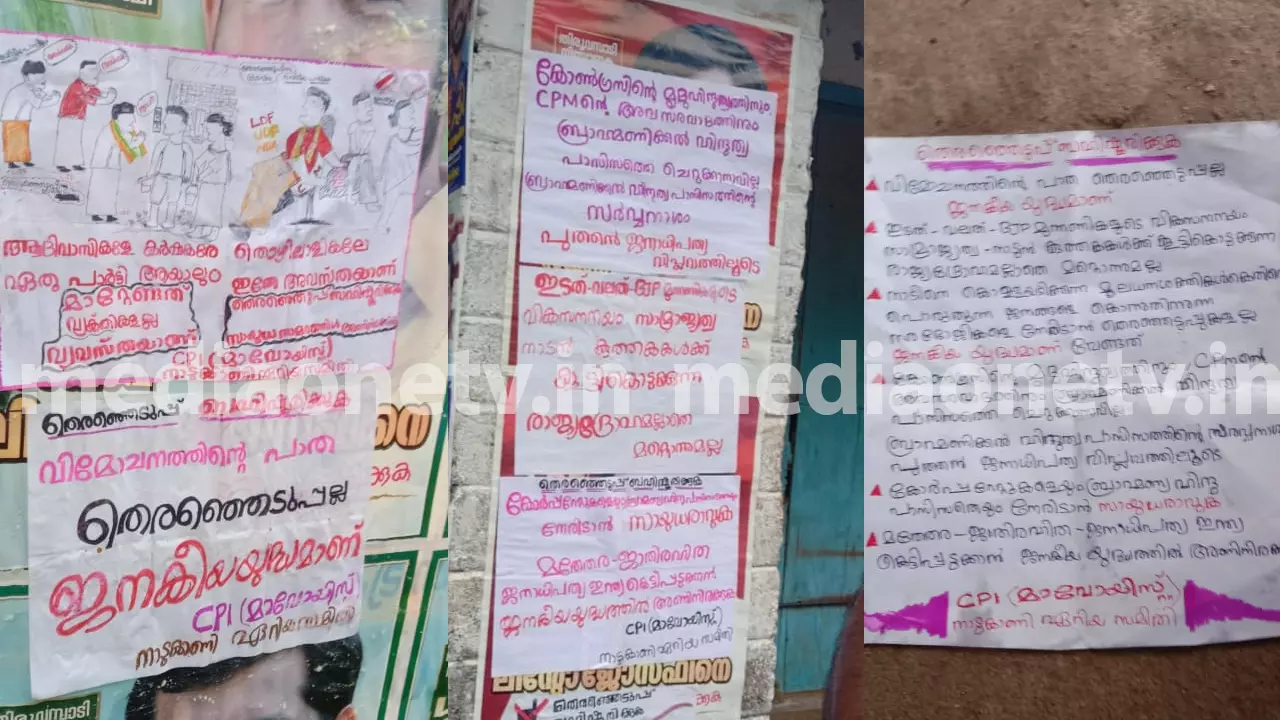 LDF
UDF
ആദിവാസികളേ കർഷകരേ തൊഴിലാളികളേ
ഏതു പാർട്ടി ആയാലും ഇതേ അവസ്ഥയാണ്
മാറ്റേണ്ടത്
വ്യക്തികളല്ല
വ്യവസ്ഥയാണ്
CPI (മാവോയിസ്റ്റ്)
തെരഞ്ഞെടുപ്പ് ബഹിഷ്കരിക്കുക
വിമോചനത്തിന്റെ പാത
തെരഞ്ഞെടുപ്പല്ല
ജനകീയയുദ്ധമാണ്
CPI (മാവോയിസ്റ്റ്)
നാടുകാണി ഏരിയാസമിതി
തിരുവമ്പാടി
തിരുവമ്പാടി
കോൺഗ്രസിന്റെ മൃദുഹിന്ദുത്വത്തിനും
CPM ന്റെ അവസരവാദത്തിനും
ബ്രാഹ്മണിക്കൽ ഹിന്ദുത്വ
ഫാസിസത്തെ ചെറുക്കാനാവില്ല
ബ്രാഹ്മണിക്കൽ ഹിന്ദുത്വ ഫാസിസത്തിന്റെ
സർവ്വനാശം
പുത്തൻ ജനാധിപത്യ
വിപ്ലവത്തിലൂടെ
ഇടത്-വലത്-BJP മുന്നണികളുടെ
വികസനനയം സാമ്രാജ്യത്വ
നാടൻ കുത്തകകൾക്ക്
കൂട്ടിക്കൊടുക്കുന്ന
രാജ്യദ്രോഹമല്ലാതെ
മറ്റൊന്നുമല്ല
തെരഞ്ഞെടുപ്പ് ബഹിഷ്കരിക്കുക
നേരിടാൻ സായുധരാവുക
മതേതര-ജാതിരഹിത
ജനാധിപത്യ ഇന്ത്യ കെട്ടിപ്പടുക്കാൻ
ജനകീയയുദ്ധത്തിൽ അണിനിരക്കുക
CPI (മാവോയിസ്റ്റ്)
നാടുകാണി ഏരിയാ സമിതി
ലിന്റോ ജോസഫിനെ
തെരഞ്ഞെടുപ്പ്
ബഹിഷ്കരിക്കുക
തെരഞ്ഞെടുപ്പ് ബഹിഷ്കരിക്കുക
വിമോചനത്തിന്റെ പാത തെരഞ്ഞെടുപ്പല്ല
ജനകീയ യുദ്ധമാണ്
ഇടത്-വലത്-BJP മുന്നണികളുടെ വികസനനയം
സാമ്രാജ്യത്വ-നാടൻ കുത്തകകൾക്ക് കൂട്ടിക്കൊടുക്കുന്ന
രാജ്യദ്രോഹമല്ലാതെ മറ്റൊന്നുമല്ല
നാടിനെ കൊള്ളയടിക്കുന്ന മൂലധനശക്തികൾക്കെതിരെ
പൊരുതുന്ന ജനങ്ങളെ കൊന്നുതിന്നുന്ന
നരഭോജികളെ നേരിടാൻ തെരഞ്ഞെടുപ്പുകളല്ല
ജനകീയ യുദ്ധമാണ് വേണ്ടത്
CPM ന്റെ
ഫാസിസത്തെ ചെറുക്കാനാവില്ല
ബ്രാഹ്മണിക്കൽ ഹിന്ദുത്വ ഫാസിസത്തിന്റെ സർവ്വനാശം
പുത്തൻ ജനാധിപത്യ വിപ്ലവത്തിലൂടെ
കോർപ്പറേറ്റുകളെയും ബ്രാഹ്മണ്യ ഹിന്ദു
ഫാസിസത്തെയും നേരിടാൻ സായുധരാവുക
മതേതര-ജാതിരഹിത-ജനാധിപത്യ ഇന്ത്യ
കെട്ടിപ്പടുക്കാൻ ജനകീയ യുദ്ധത്തിൽ അണിനിരക്കുക
CPI (മാവോയിസ്റ്റ്)
നാടുകാണി ഏരിയ സമിതി
mediaonetv.in mediaonetv.in